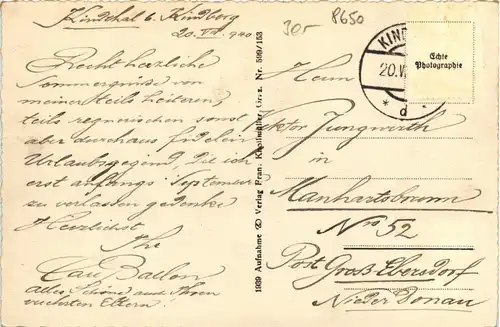 Kindthal b. Kindberg
20. VII. 940
Recht herzliche
Sommergrüße von
meiner teils heiteren,
teils regnerischen sonst
aber durchaus fidelen
Urlaubsgegend, die ich
erst anfangs September
zu verlassen gedenke
Herzlichst
Ihr
Carl Ballon
alles Schöne auch Ihren
verehrten Eltern!
1939 Aufnahme Verlag Fran. Graz. Nr. 599/153
30.-
8650
KIND
20.V
* d
Echte
Photographie
Herrn
Viktor Jungwirth
in
Manhartsbrunn
Nro 52
Post Groß-Ebersdorf
Nieder Donau